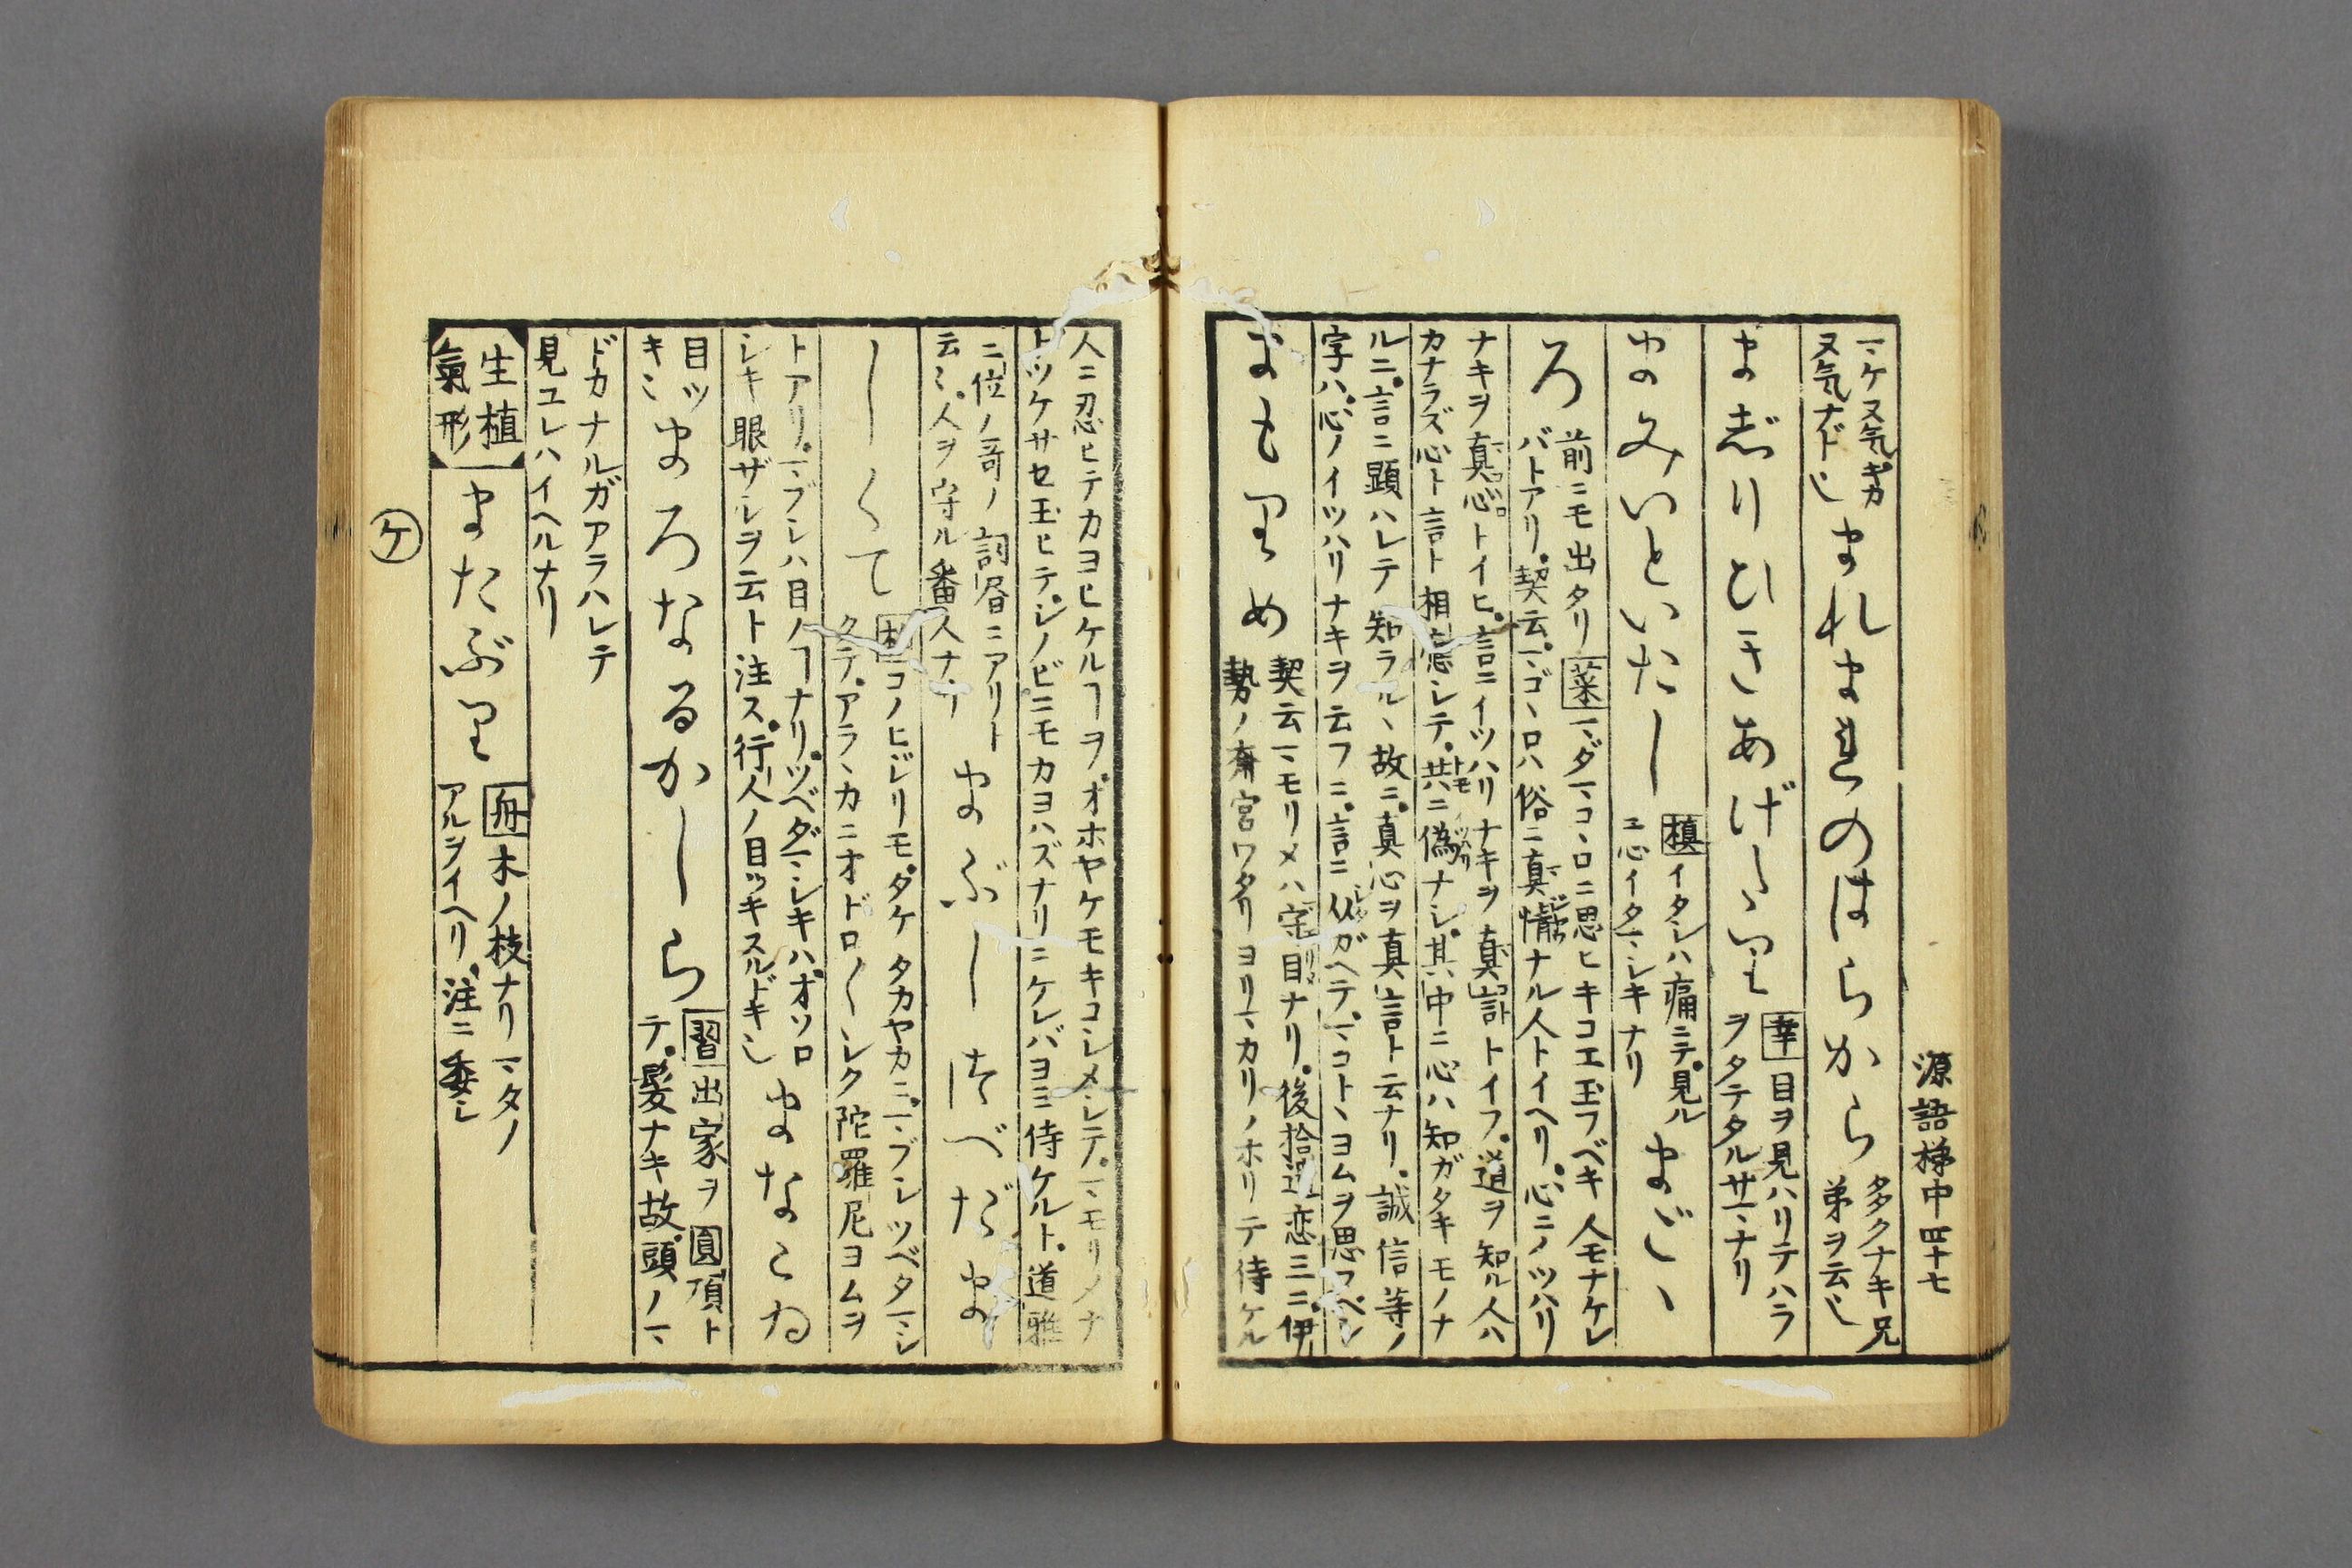 源語梯中 四十七
マケ又気ギカ
又気ナド也 まれまれのはらから 多クナキ兄
弟ヲ云也
まじりひきあげたり 幸 目ヲ見ハリテハラ
ヲタテタルサマナリ
まみいといたし 槙 イタシハ痛ニテ見ル
エ心イタマシキナリ まごゝ
ろ 前ニモ出タリ 菜 マダマコヽロニ思ヒキコエ玉フベキ人モナケレ
バトアリ契云マゴヽロハ俗ニ真 ナル人トイヘリ心ニノツハリ
ナキヲ真心トイヒ言ニイツハリナキヲ真 トイフ道ヲ知ル人ハ
カナラズ心ト言ト相應シテ共ニ偽ナシ其中ニ心ハ知ガタキモノナ
ルニ言ニ顕ハレテ知ラルヽ故ニ真心ヲ真言ト云ナリ誠信等ノ
字ハ心ノイツハリナキヲ云フニ言ニ ガヘテマコトヽヨムヲ思フベシ
まもりめ 契云マモリメハ守目ナリ後拾遺恋三ニ伊
勢ノ斎宮ワタリヨリマカリノホリテ侍ケル
人ニ忍ヒテカヨヒケルヿヲオホヤケモキコシメシテマモリメナ
トツケサセ玉ヒテシノビニモカヨハズナリニケレバヨミ侍ケルト道雅
三位ノ哥ノ詞昏ニアリト
云々人ヲ守ル番人ナリ まぶしつべたま
しくて 若 コノヒジリモタケタカヤカニマブシツベタマシ
クテアラヽカニオドロ〳〵シク陀羅尼ヨムヲ
トアリマブシハ目ノヿナリツベダマシキハオソロ
シキ眼ザシヲ云ト注ス行人ノ目ツキスルドキ也 まなこゐ
目ツ
キ也 まろなるかしら 習 出家ヲ圓頂ト
テ髪ナキ故頭ノマ
ドカナルガアラハレテ
見ユレハイヘルナリ
生植
氣形 またぶり 舟 木ノ枝ナリマタノ
アルヲイヘリ注ニ委し
ケ